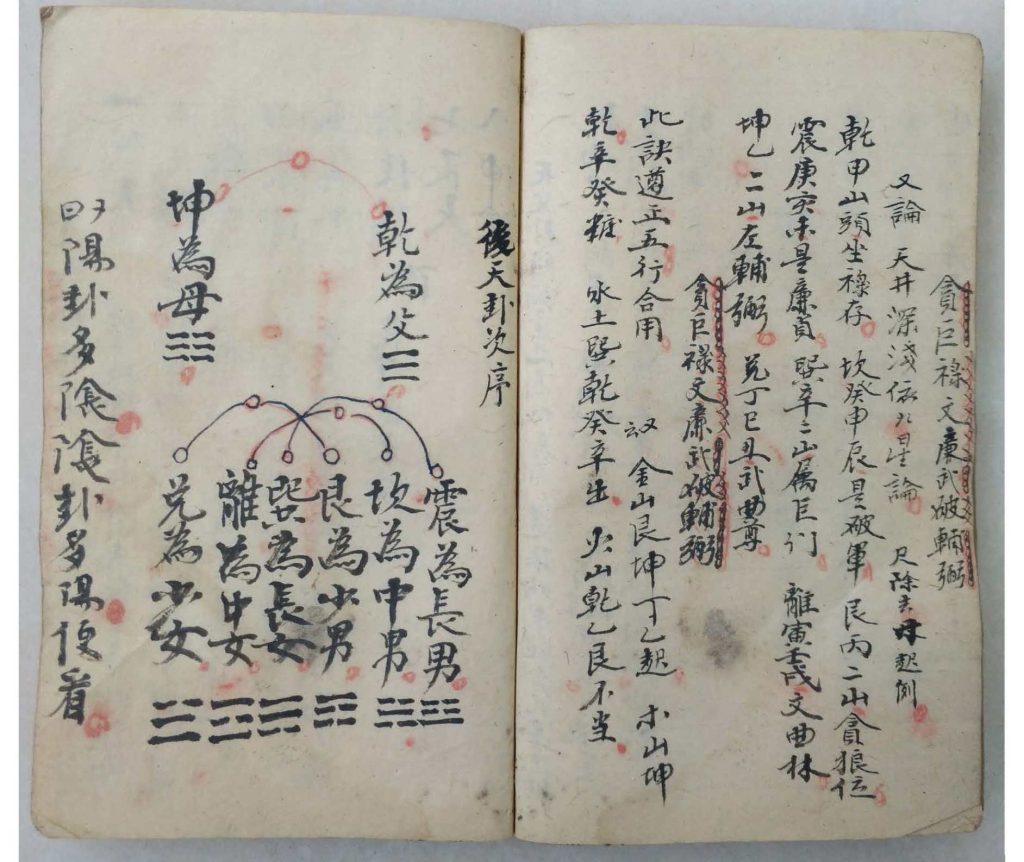 貪巨祿文廉武破輔弼
又論 天井深淺依九星論 尺除去 起例
乾甲山頭坐祿存 坎癸申辰是破軍 艮丙二山貪狼位
震庚亥未是廉貞 巽辛二山属巨门 離寅壬戌文曲林
坤乙二山左輔弼 兑丁巳丑武曲尊
貪巨祿文廉武破輔弼
此訣遵正五行合用 又 金山艮坤丁乙起 木山坤
乾辛癸 水土巽乾癸辛出 火山乾乙艮不当
後天卦次序
乾為父☰
坤為母☷
震為長男☳
坎為中男☵
艮為少男☶
巽為長女☴
離為中女☲
兑為少女☱
陽卦多陰陰卦多陽便看